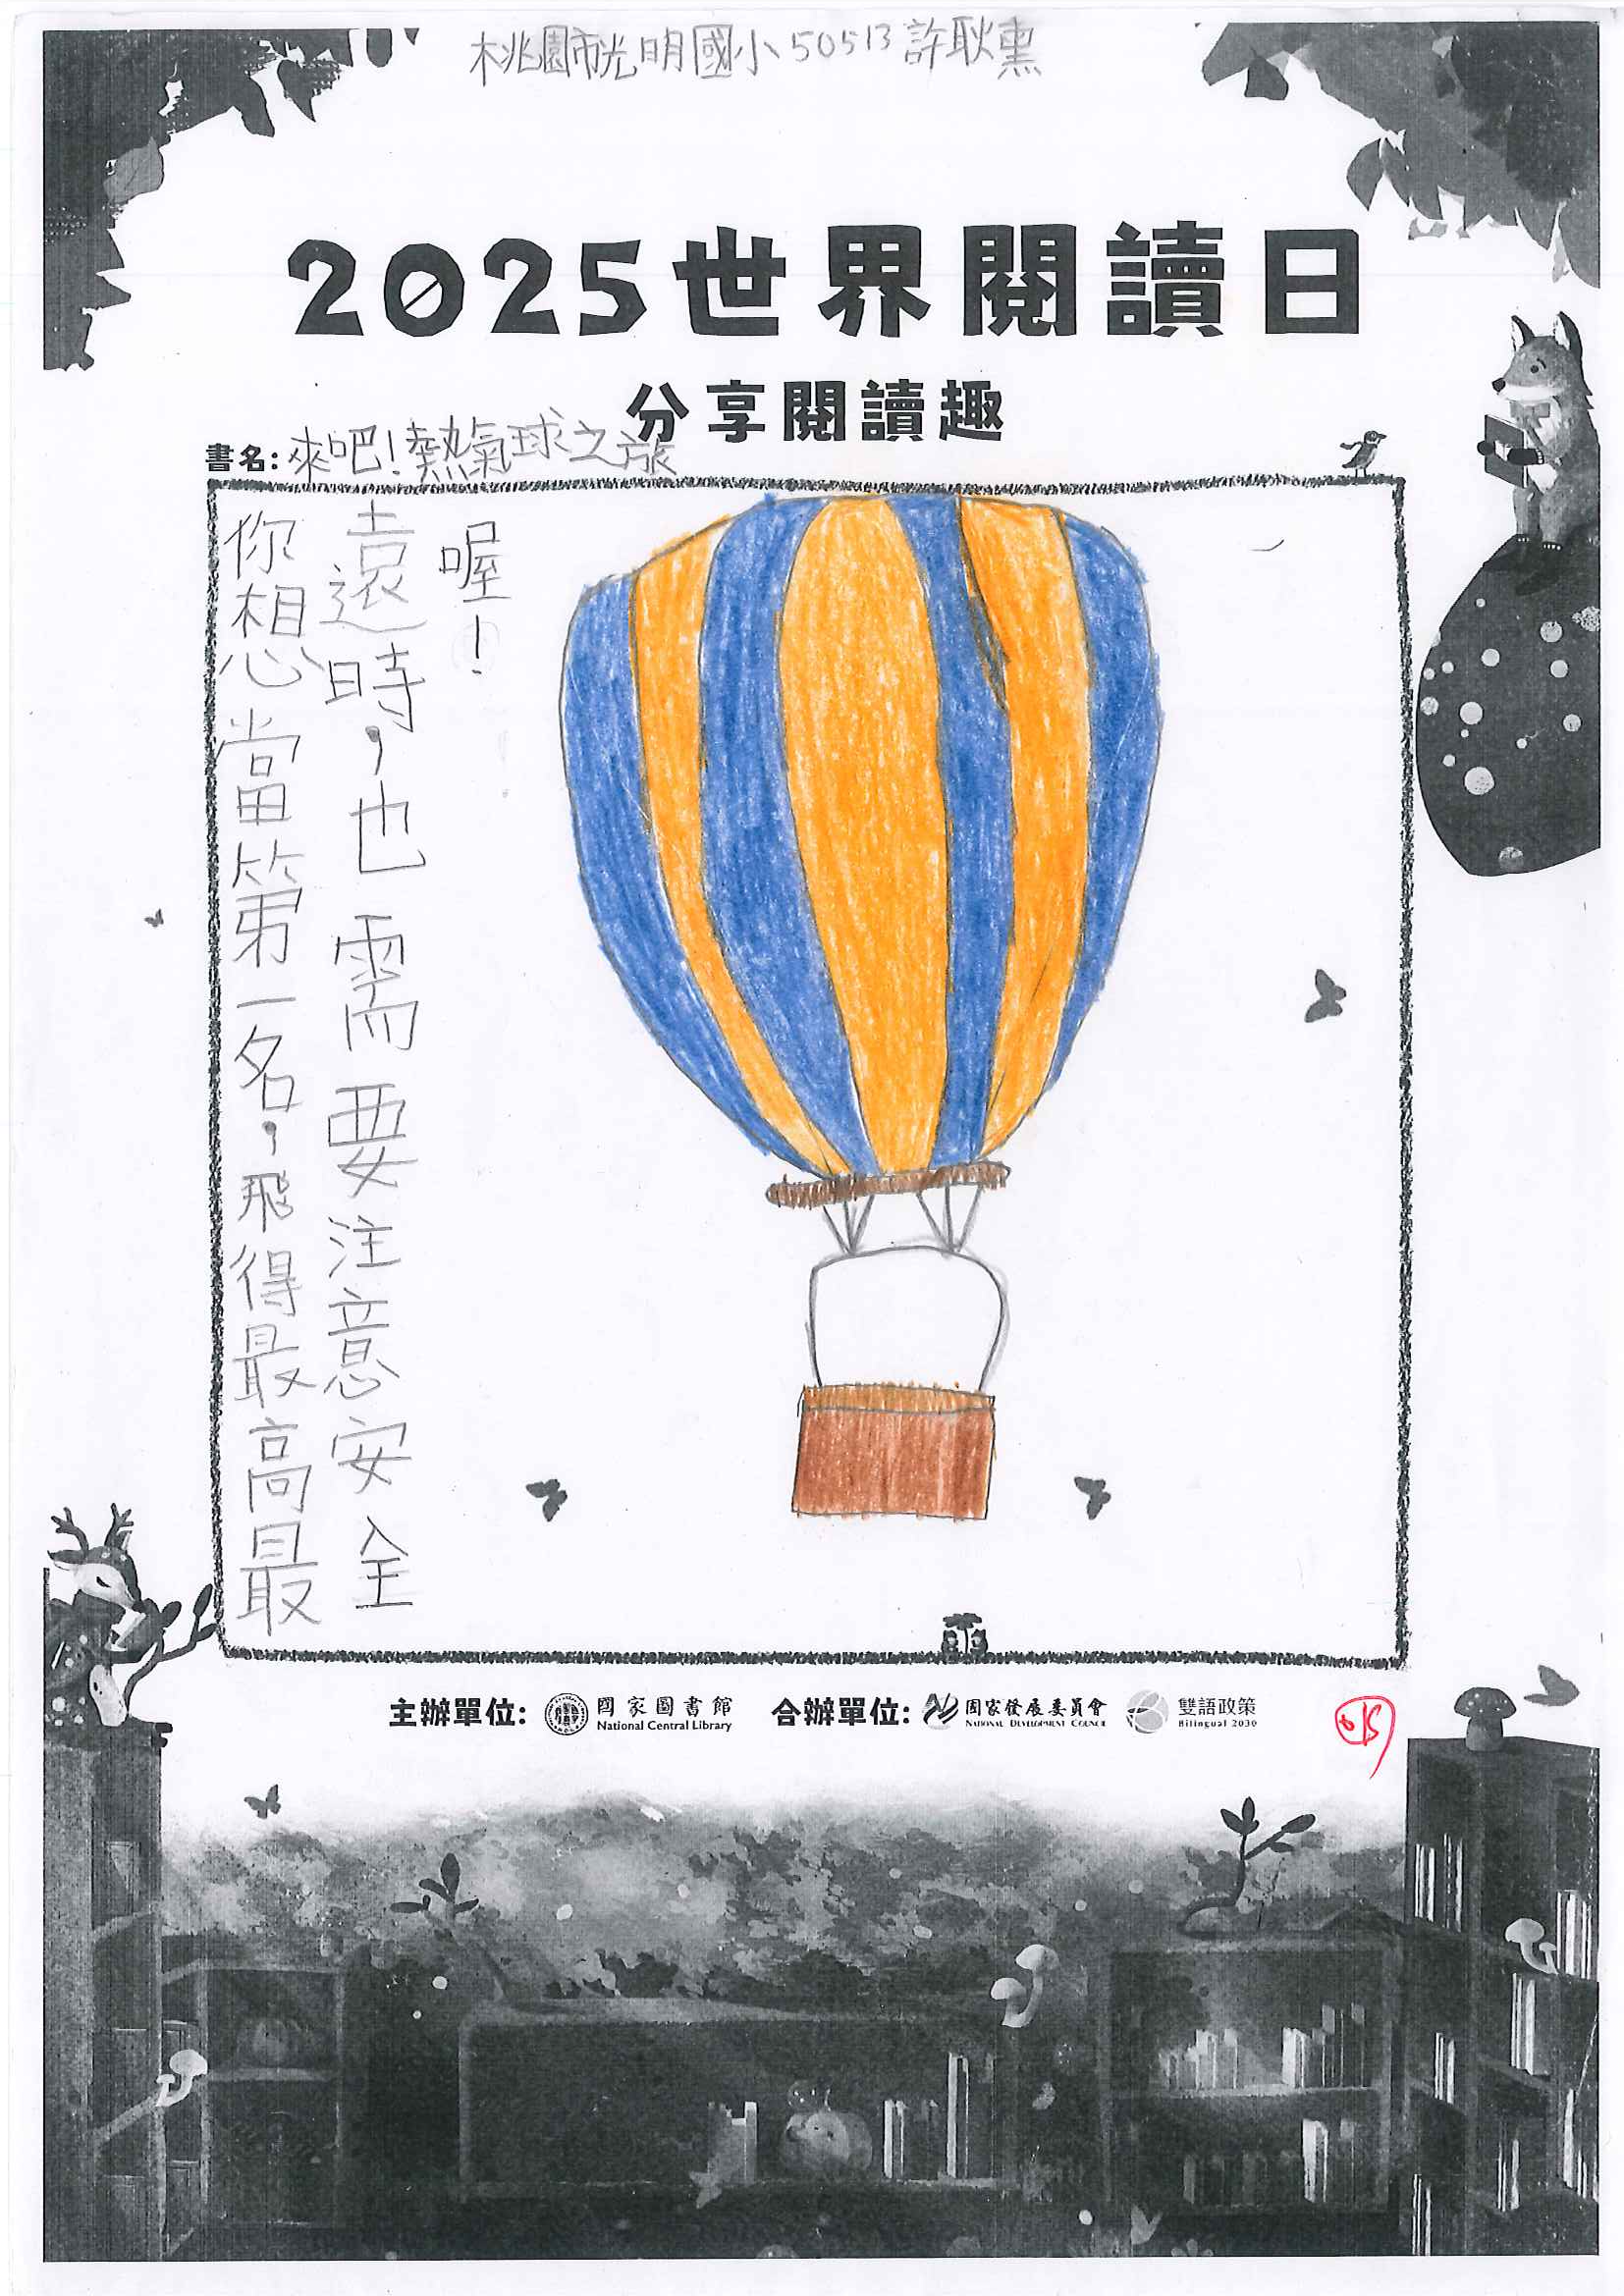 桃園市光明國小50513許耿熏
2025世界閱讀日
分享閱讀趣
書名:來吧!熱氣球之旅
你想當第一名,飛得最高最
遠時,也需要注意安全
喔!
主辦單位: 國家圖書館 National Central Library 合辦單位: 國家發展委員會 NATIONAL DEVELOPMENT COUNCIL 雙語政策 Bilingual 2030